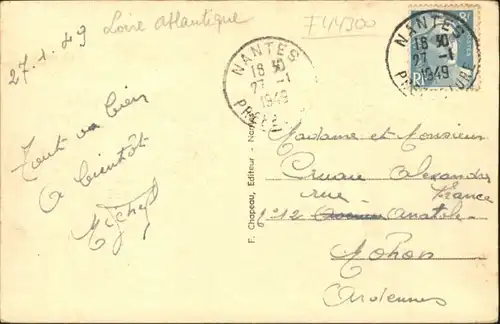 27.1.49
Loire Atlantique
F44300
NANTES
18 30
27 -1
1949
NANTES
18 30
27 -1
1949
Tout va bien
A bientôt
Michel
F. Chapeau, Editeur - Nantes
Madame et Monsieur
Cruau Alexandre
rue France
N°12 Avenue Anatole
Mohon
Ardennes